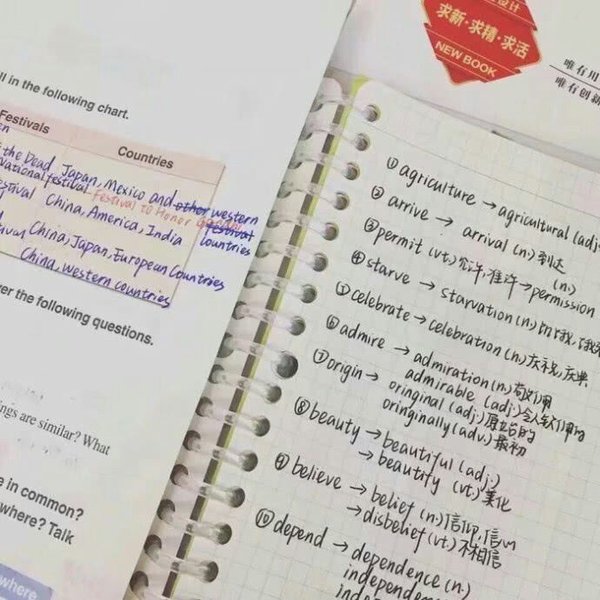 求新·求精·求活
NEW BOOK
唯有用
唯有创新
ll in the following chart.
Festivals
Countries
the Dead Japan, Mexico and other western
national festival festival to Honor
festival China, America, India festival countries
China, Japan, European Countries
China, western countries
er the following questions.
ngs are similar? What
e in common?
where? Talk
where
①agriculture → agricultural (adj.
②arrive → arrival (n.) 到达
③permit (vt.) 允许,准许 → permission
(n.)
④starve → starvation (n.)
⑤celebrate → celebration (n.) 庆祝,庆典
⑥admire → admiration (n.) 敬佩
admirable (adj.) 令人钦佩的
⑦origin → oringinal (adj.) 原始的
oringinally (adv.) 最初
⑧beauty → beautiful (adj.)
→ beautify (vt.) 美化
⑨believe → belief (n.) 信仰,信心
→ disbelief (vt) 不相信
⑩depend → dependence (n.)
independen